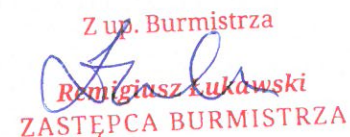 Z up. Burmistrza
Remigiusz Łukawski
ZASTĘPCA BURMISTRZA